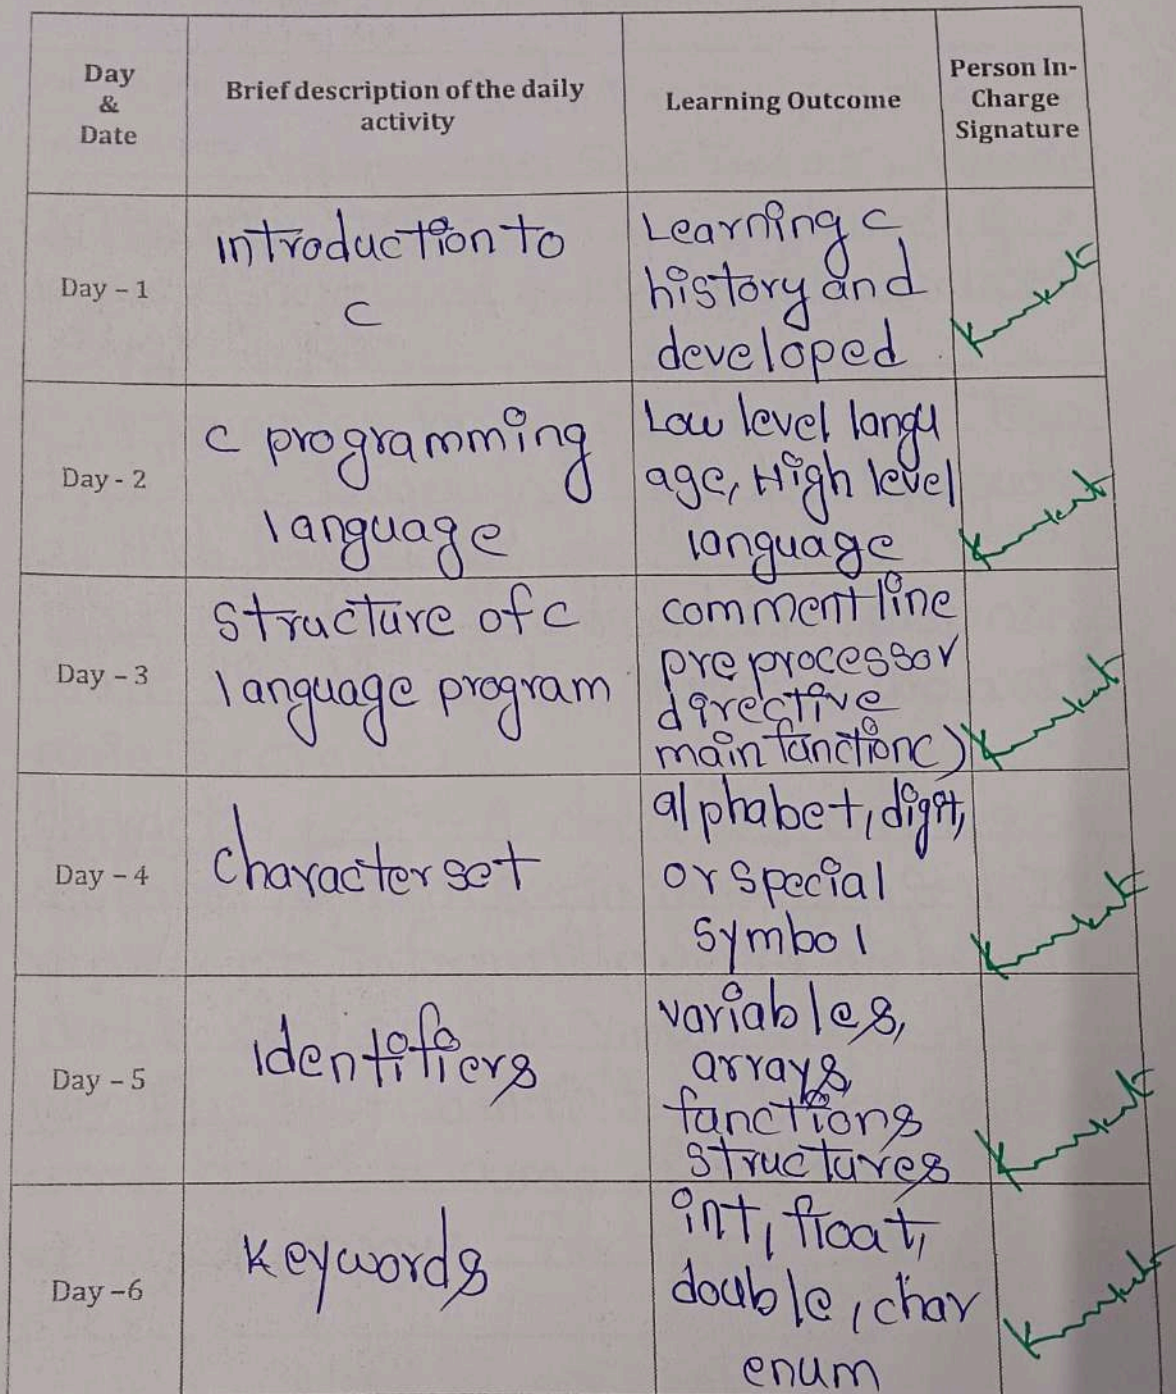 Day
&
Date
Brief description of the daily
activity
Learning Outcome
Person In-
Charge
Signature
Day – 1
introduction to
c
Learning c
history and
developed
Day - 2
c programming
language
Low level langu
age, High level
language
Day – 3
structure of c
language program
comment line
preprocessor
directive
main function()
Day – 4
character set
alphabet, digit,
or special
symbol
Day – 5
Identifiers
variables,
arrays,
functions
structures
Day –6
keywords
int, float,
double, char
enum